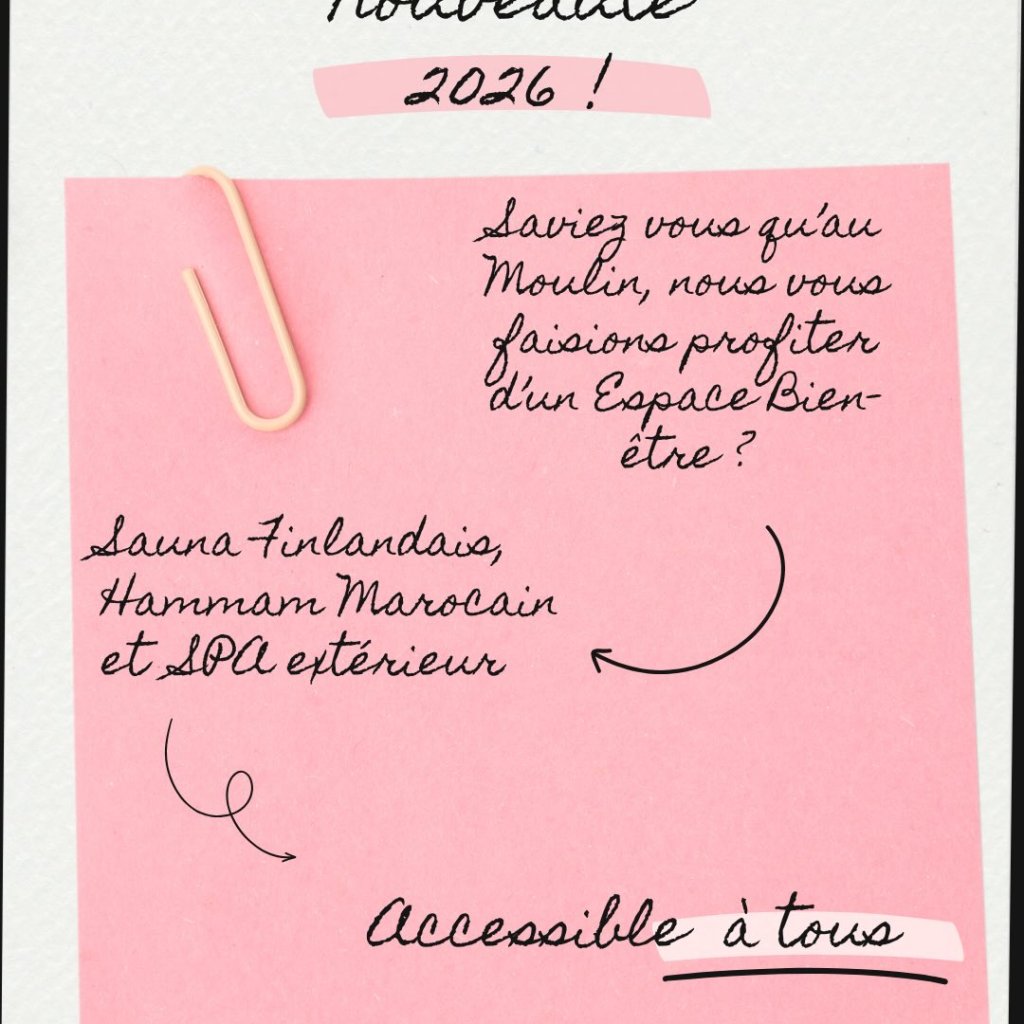 nouveauté
2026 !
Saviez vous qu'au
Moulin, nous vous
faisions profiter
d'un Espace Bien-
être ?
Sauna Finlandais,
Hammam Marocain
et SPA extérieur
Accessible à tous